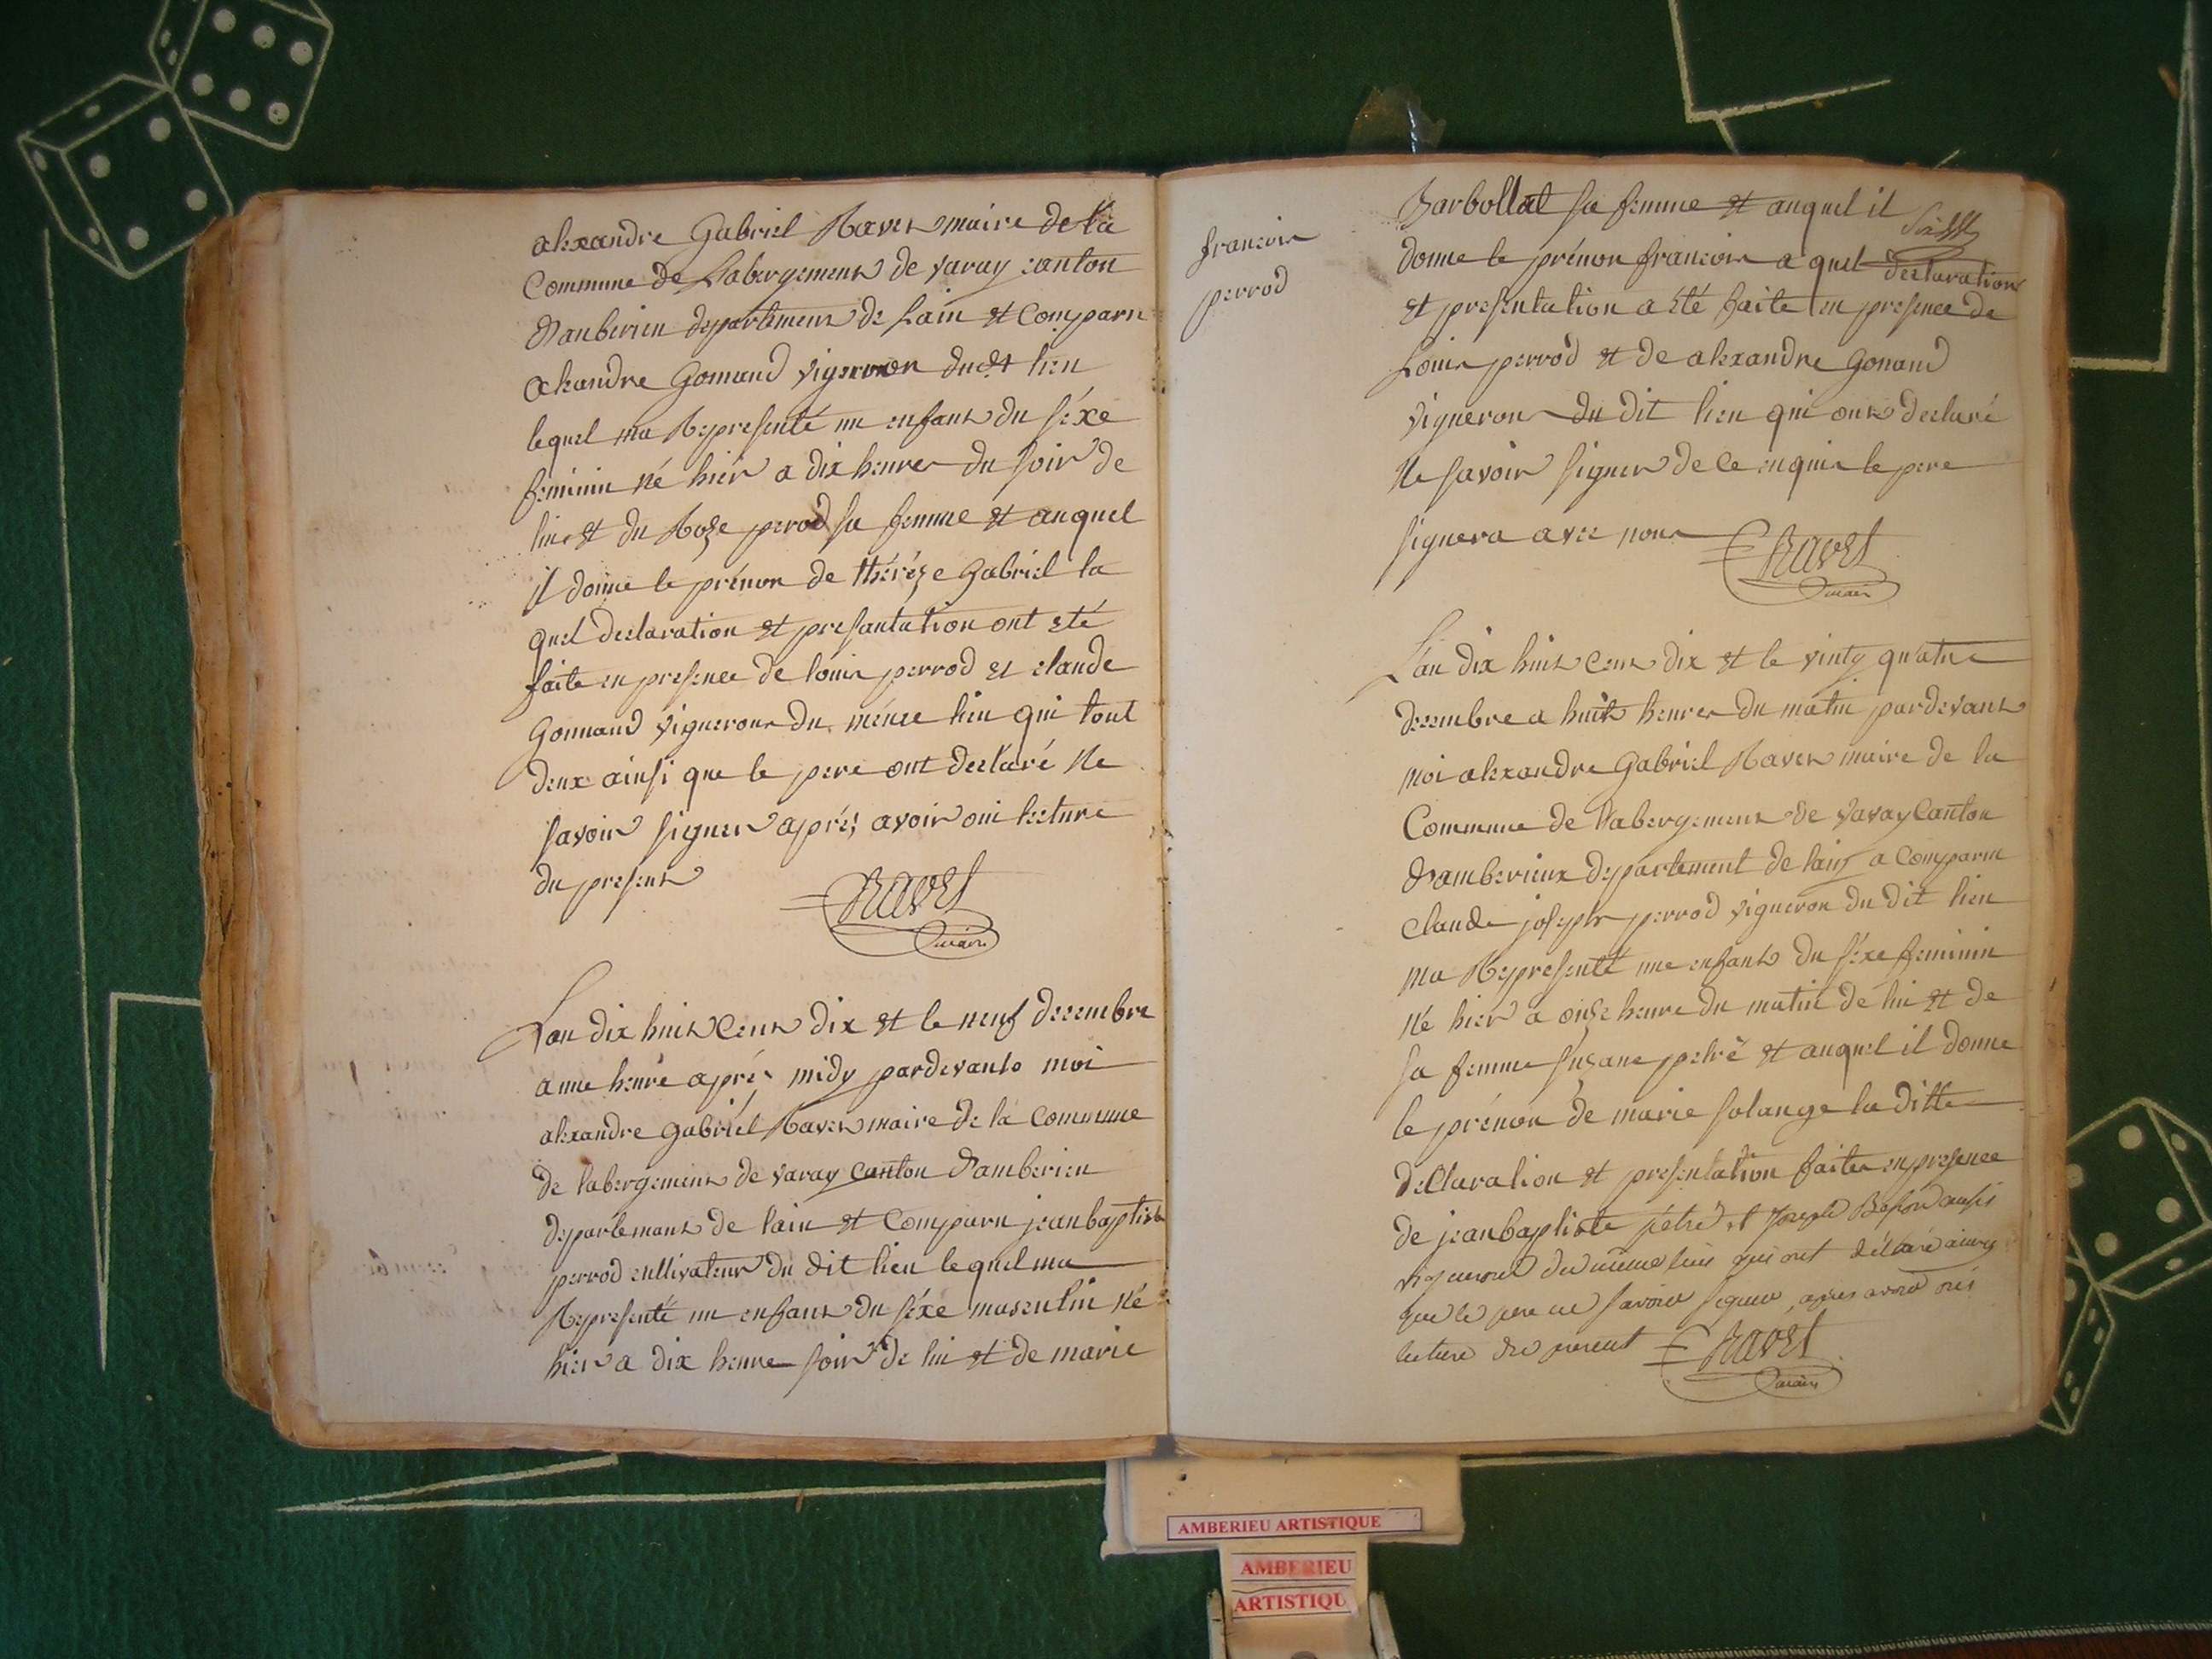 alexandre Gabriel Ravet maire de la
Commune de Labergement de varay canton
d'anberieu departement de Lain et Comparu
alexandre Gomand vigerron dudt lieu
lequel ma Representé un enfant du séxe
feminin né hiér a dix heures du soir de
lui et du Roze perod sa femme et auquel
il donne le prénon de théréze Gabriel la
quel declaration et presantation ont eté
faite en presence de louis perrod et claude
Gonnand vignerons du même lieu qui tout
deux ainsi que le pere ont declaré Ne
savoir signer aprés avoir oui lecture
du present
Ravet
maire
Lan dix huit Cent dix et le neuf decembre
a une heure aprés midy pardevant moi
alexandre Gabriel Ravet maire de la Commune
de labergement de varay canton d'amberieu
departemant de lain et Comparu jean baptiste
perrod cultivateur du dit lieu lequel ma
Represénté un enfant du séxe masculin né
hier a dix heure soir de lui et de marie
francois
perrod
Barbollat sa femme et auquel il
donne le prénon francois a quel declaration
et presentation a été faite en presence de
Louis perrod et de alexandre Gonand
vigneron du dit lieu qui ont declaré
Ne savoir signer de ce enquis le pere
signera avec nous
Ravet
maire
L'an dix huit cent dix et le vinty quatre
decembre a huit heures du matin pardevant
moi alexandre Gabriel Ravet maire de la
Commune de Labergement de Varay Canton
d'amberieux departement de lain a Comparu
Claude joseph perrod vigneron du dit lieu
ma Represénté une enfant du séxe feminin
né hier a onze heure du matin de lui et de
sa femme suzane petré et auquel il donne
le prénon de marie solange la ditte
declaration et presentation faites en presence
de jean baptiste petré et Joseph
vignerons du même lieu qui ont déclaré ainsy
que le pere ne savoir signer, apres avoir oui
lecture du present
Ravet
maire
AMBERIEU ARTISTIQUE
AMBERIEU
ARTISTIQU